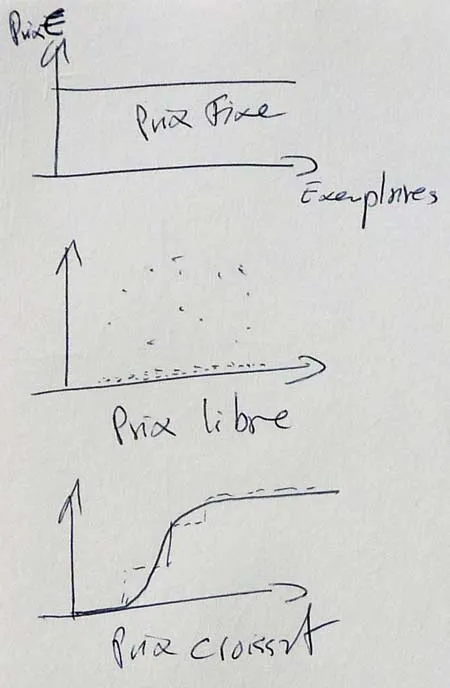 Prix €
Prix Fixe
Exemplaires
Prix libre
Prix croisst